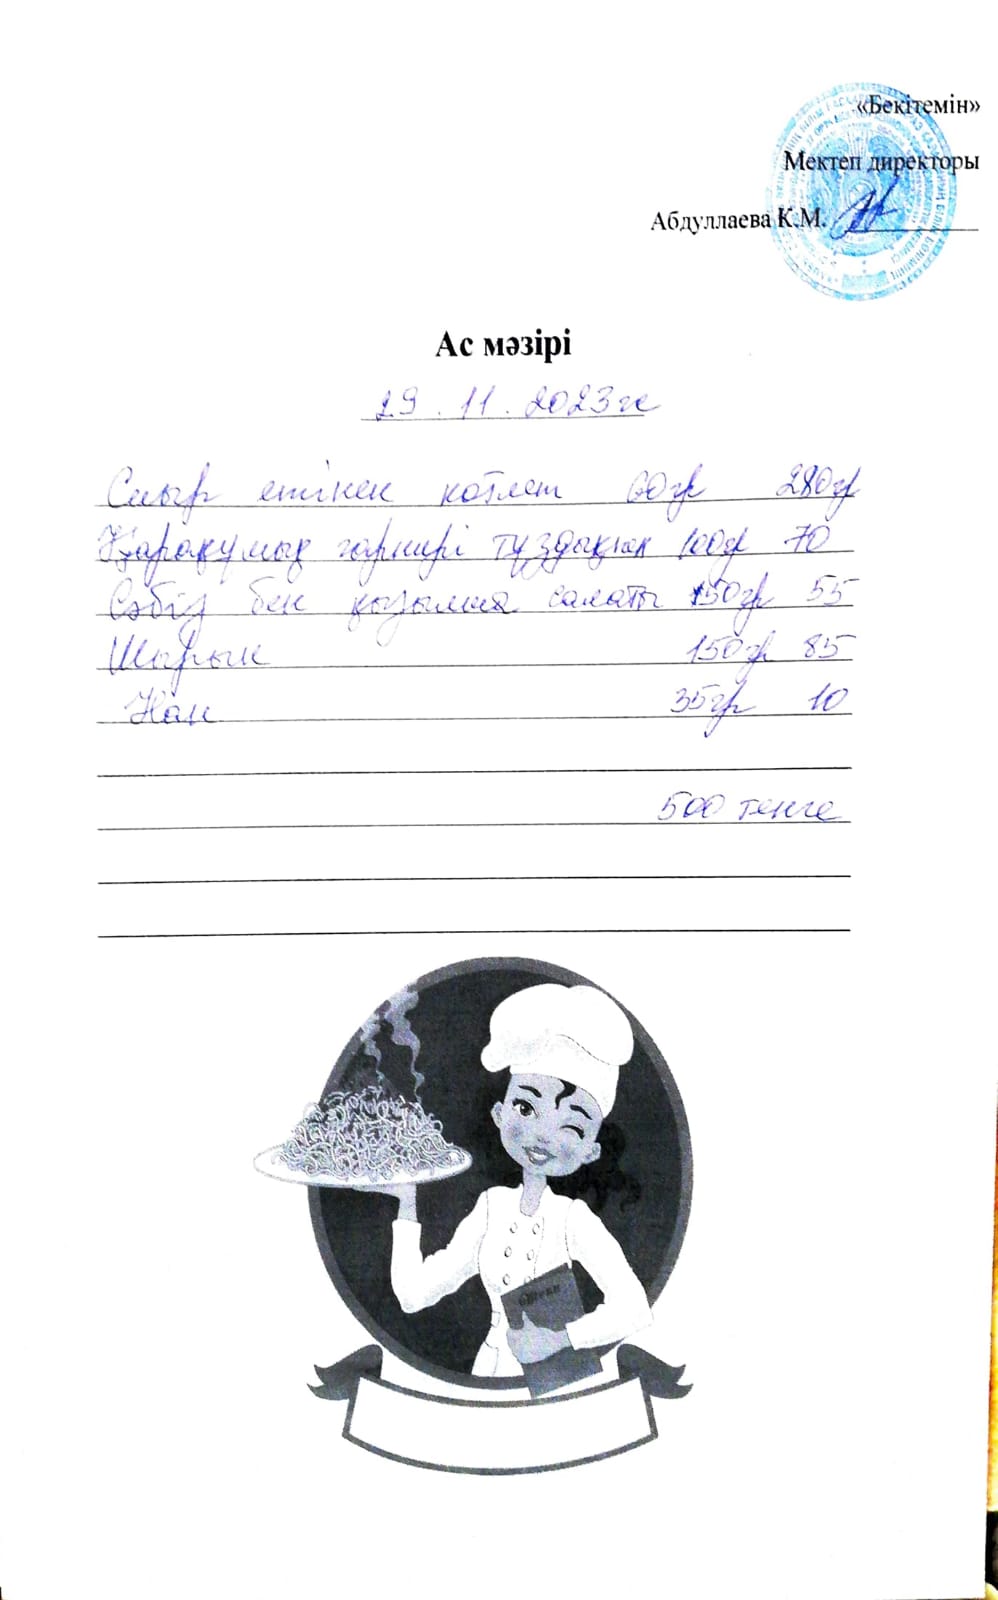 «Бекітемін»
Мектеп директоры
Абдуллаева К.М.
Ас мәзірі
29.11.2023ж
Сиыр етінен котлет 60гр 280гр
Қарақұмық гарнирі тұздықпен 100гр 70
Сәбіз бен қызылша салаты 150гр 55
Шырын 150гр 85
Нан 35гр 10
500 тенге
Меню